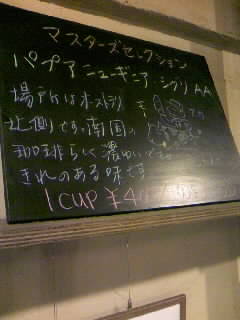 マスターズセレクション
パプアニューギニア シグリ AA
場所はオーストラリ
近側です。南国の
珈琲らしく濃い
きれのある味です
1 CUP ¥4